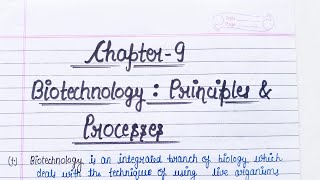 Chapter-9
Biotechnology : Principles &
Processes
(1) Biotechnology is an integrated branch of biology which
deals with the technique of using live organisms